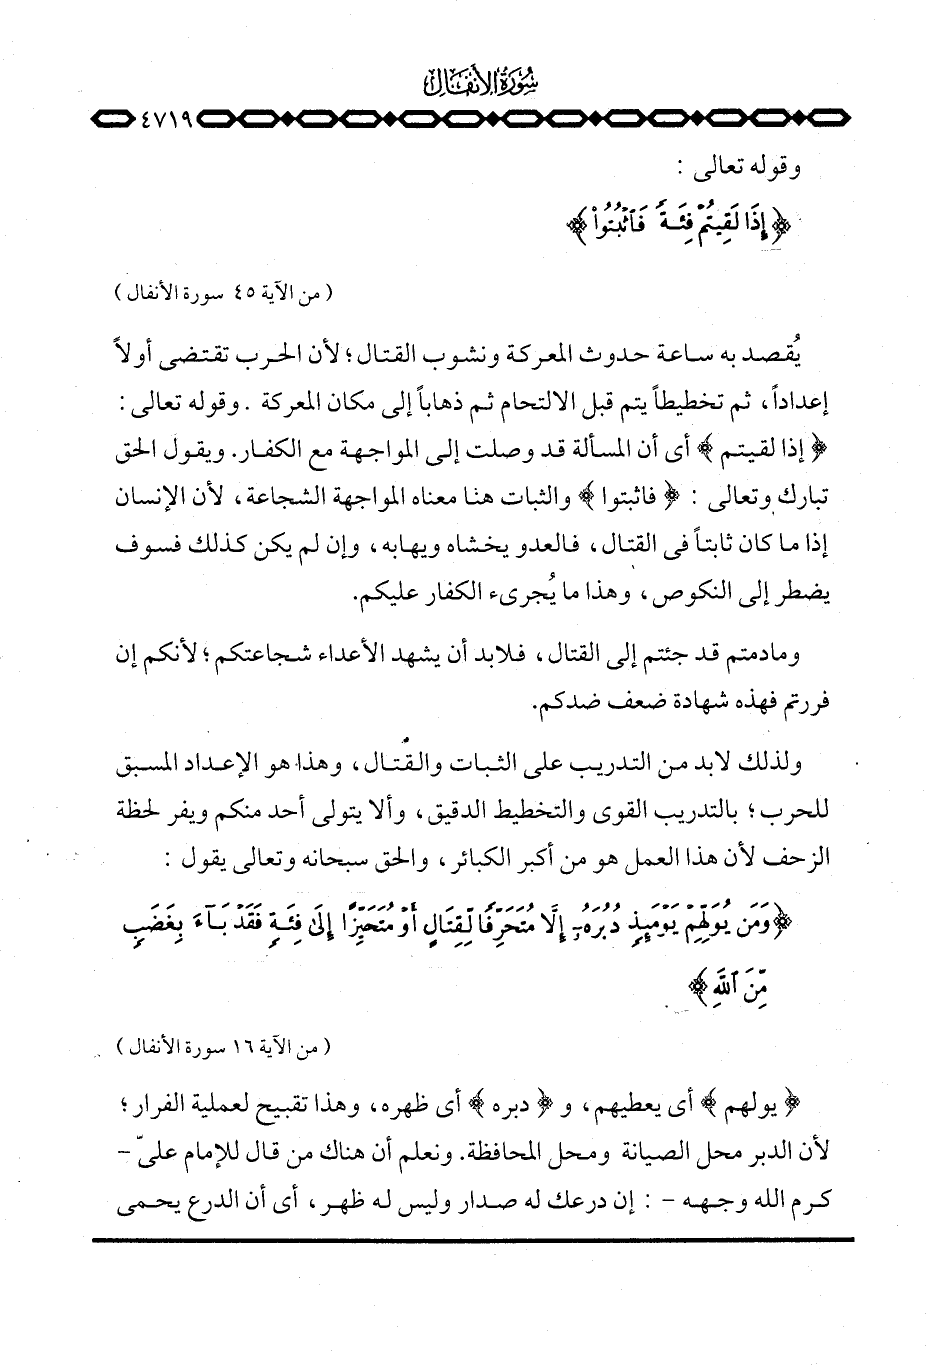 سُورَةُ الأَنفَال
٤٧١٩
وقوله تعالى :
﴿ إِذَا لَقِيتُمْ فِئَةً فَٱثْبُتُوا۟ ﴾
( من الآية ٤٥ سورة الأنفال )
يُقصد به ساعة حدوث المعركة ونشوب القتال ؛ لأن الحرب تقتضى أولاً
إعداداً ، ثم تخطيطاً يتم قبل الالتحام ثم ذهاباً إلى مكان المعركة . وقوله تعالى :
﴿ إذا لقيتم ﴾ أى أن المسألة قد وصلت إلى المواجهة مع الكفار. ويقول الحق
تبارك وتعالى : ﴿ فاثبتوا ﴾ والثبات هنا معناه المواجهة الشجاعة ، لأن الإنسان
إذا ما كان ثابتاً فى القتال ، فالعدو يخشاه ويهابه ، وإن لم يكن كذلك فسوف
يضطر إلى النكوص ، وهذا ما يُجرىء الكفار عليكم.
ومادمتم قد جئتم إلى القتال ، فلابد أن يشهد الأعداء شجاعتكم ؛ لأنكم إن
فررتم فهذه شهادة ضعف ضدكم.
ولذلك لابد من التدريب على الثبات والقتال ، وهذا هو الإعداد المسبق
للحرب ؛ بالتدريب القوى والتخطيط الدقيق ، وألا يتولى أحد منكم ويفر لحظة
الزحف لأن هذا العمل هو من أكبر الكبائر ، والحق سبحانه وتعالى يقول :
﴿ وَمَن يُوَلِّهِمْ يَوْمَئِذٍ دُبُرَهُۥٓ إِلَّا مُتَحَرِّفًا لِّقِتَالٍ أَوْ مُتَحَيِّزًا إِلَىٰ فِئَةٍ فَقَدْ بَآءَ بِغَضَبٍ
مِّنَ ٱللَّهِ ﴾
( من الآية ١٦ سورة الأنفال )
﴿ يولهم ﴾ أى يعطيهم ، و ﴿ دبره ﴾ أى ظهره ، وهذا تقبيح لعملية الفرار ؛
لأن الدبر محل الصيانة ومحل المحافظة. ونعلم أن هناك من قال للإمام علىّ -
كرم الله وجهه - : إن درعك له صدار وليس له ظهر ، أى أن الدرع يحمى